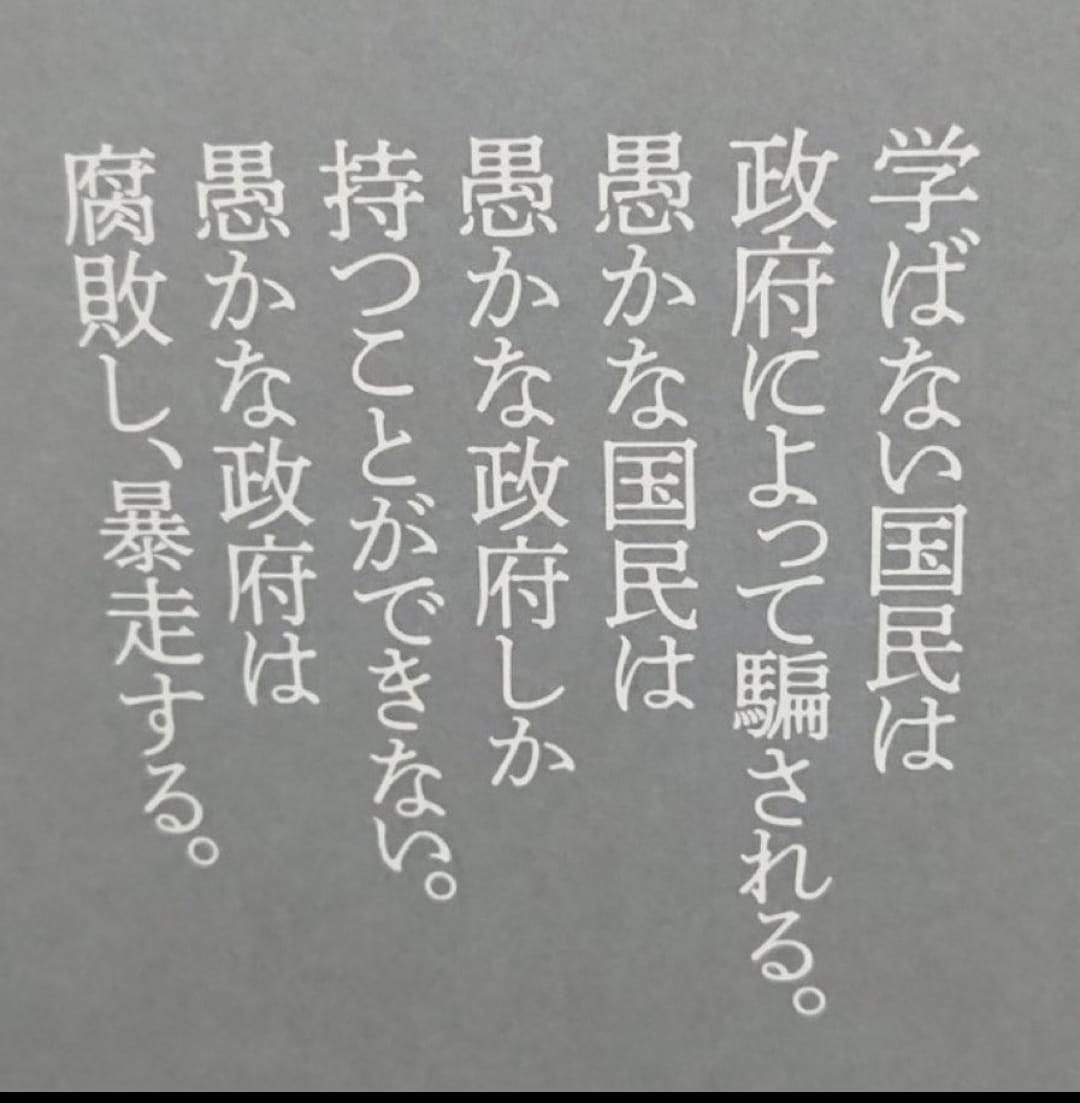 学ばない国民は
政府によって騙される。
愚かな国民は
愚かな政府しか
持つことができない。
愚かな政府は
腐敗し、暴走する。